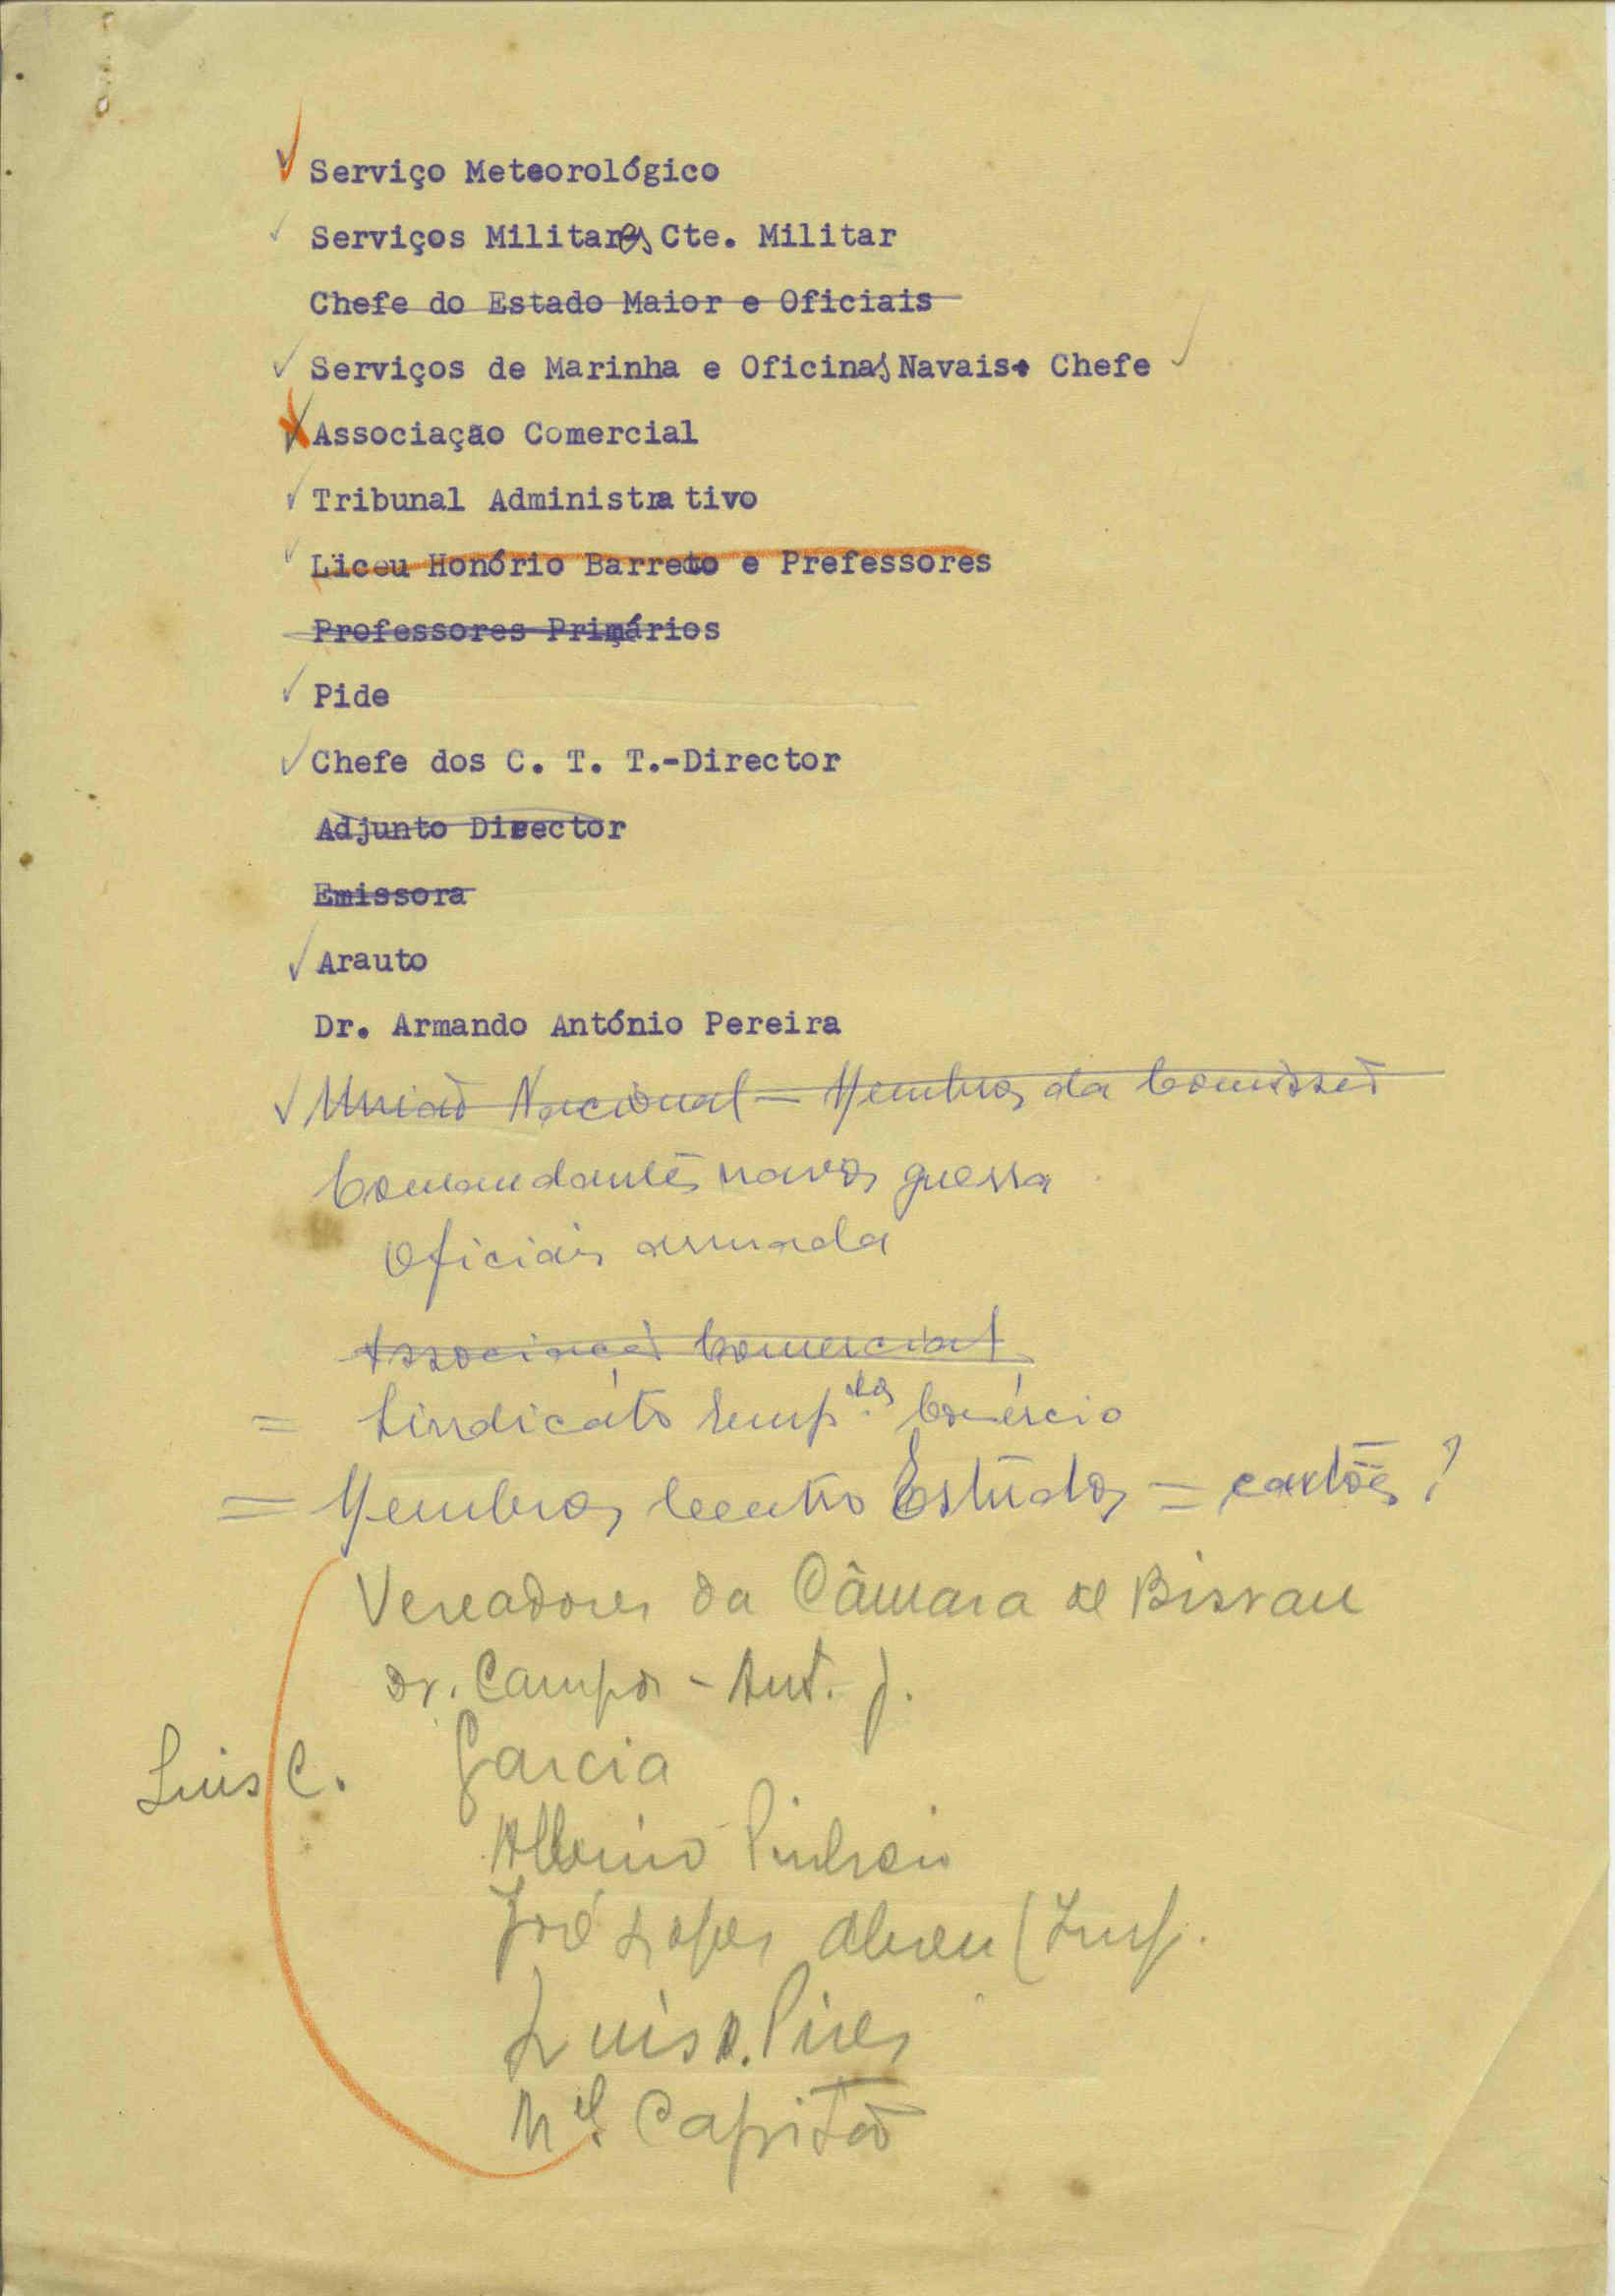 Serviço Meteorológico
Serviços Militares Cte. Militar
Chefe do Estado Maior e Oficiais
Serviços de Marinha e Oficinas Navais. Chefe
Associação Comercial
Tribunal Administrativo
Liceu Honório Barreto e Prefessores
Professores Primários
Pide
Chefe dos C. T. T.-Director
Adjunto Director
Emissora
Arauto
Dr. Armando António Pereira
União Nacional - Membros da Comissão
Comandantes navios guerra
Oficiais armada
Associação Comercial
= Sindicato Emp.dos Comércio
= Membros Centro Estudos = cartões?
Vereadores da Câmara de Bissau
Dr. Campos - Ant. J.
Luis C. Garcia
Albino Pinheiro
José Lopes Abreu (Insp.
Luis A. Pires
M.el Capitão